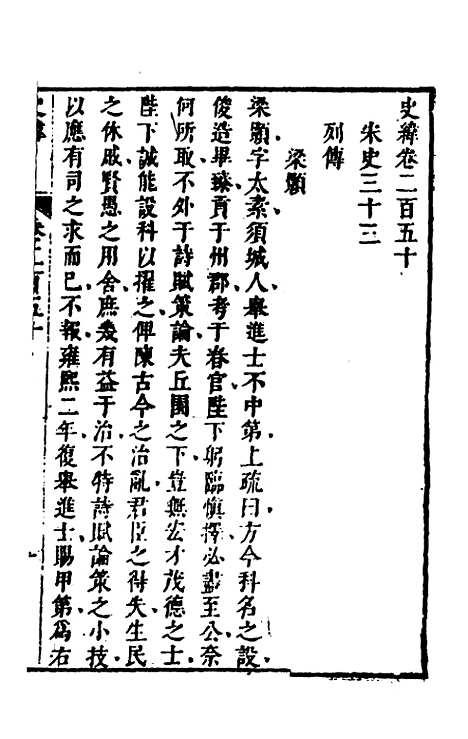 史緯卷二百五十
宋史三十三
列傳
梁顥
梁顥字太素須城人舉進士不中第上疏曰方今科名之設
俊造畢臻貢于州郡考于春官陛下躬臨慎擇必盡至公奈
何所取不外于詩賦策論夫丘園之下豈無宏才茂德之士
陛下誠能設科以擢之俾陳古今之治亂君臣之得失生民
之休戚賢愚之用舍庶幾有益于治不特詩賦論策之小技
以應有司之求而已不報雍熙二年復舉進士賜甲第爲右
卷二百五十